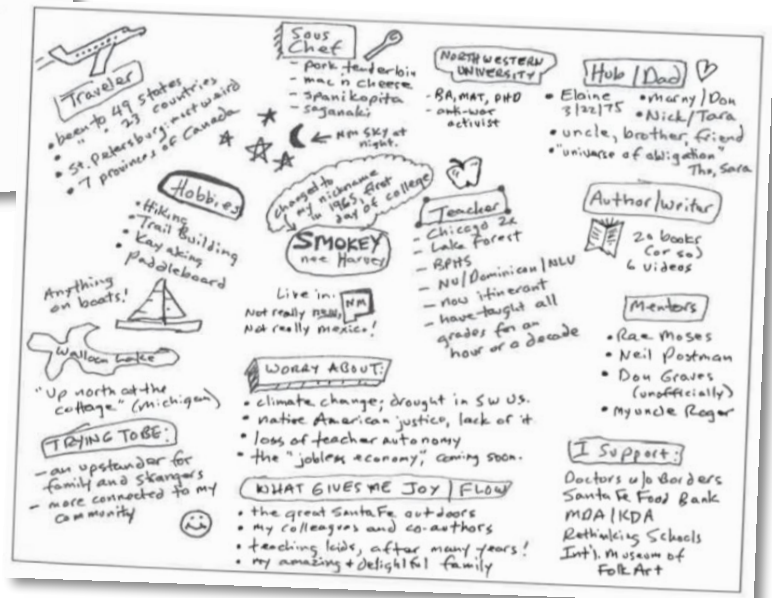 Traveler
• been to 49 states
• " " 23 countries
• St. Petersburg: most weird
• 7 provinces of Canada
Sous
Chef
- pork tenderloin
- mac n cheese
- spanikopita
- saganaki
NM SKY at
night.
NORTHWESTERN
UNIVERSITY
- BA, MAT, PHD
- anti-war
activist
Hub/Dad
• Elaine
3/22/75
• Marny/Don
• Nick/Tara
• uncle, brother, friend
• "universe of obligation"
Tho, Sara
Hobbies
• Hiking
• Trail Building
• Kayaking
• Paddleboard
Anything
on boats!
changed to
my nickname
in 1965, first
day of college
SMOKEY
nee Harvey
Live in: NM
Not really new,
Not really mexico!
Teacher
- Chicago 2x
- Lake Forest
- BPHS
- NU/Dominican/NLU
- now itinerant
- have taught all
grades for an
hour or a decade
Author/writer
20 books
(or so)
6 videos
Mentors
• Rae Moses
• Neil Postman
• Don Graves
(unofficially)
• my uncle Roger
Walloon Lake
"Up north at the
cottage" (Michigan)
TRYING TO BE:
- an upstander for
family and strangers
- more connected to my
community
WORRY ABOUT:
• climate change; drought in SW US.
• native American justice, lack of it
• loss of teacher autonomy
• the "jobless economy," coming soon.
WHAT GIVES ME JOY | FLOW
• the great Santa Fe outdoors
• my colleagues and co-authors
• teaching kids, after many years!
• my amazing + delightful family
I Support:
Doctors w/o Borders
Santa Fe Food Bank
MDA/KDA
Rethinking Schools
Int'l. Museum of
Folk Art